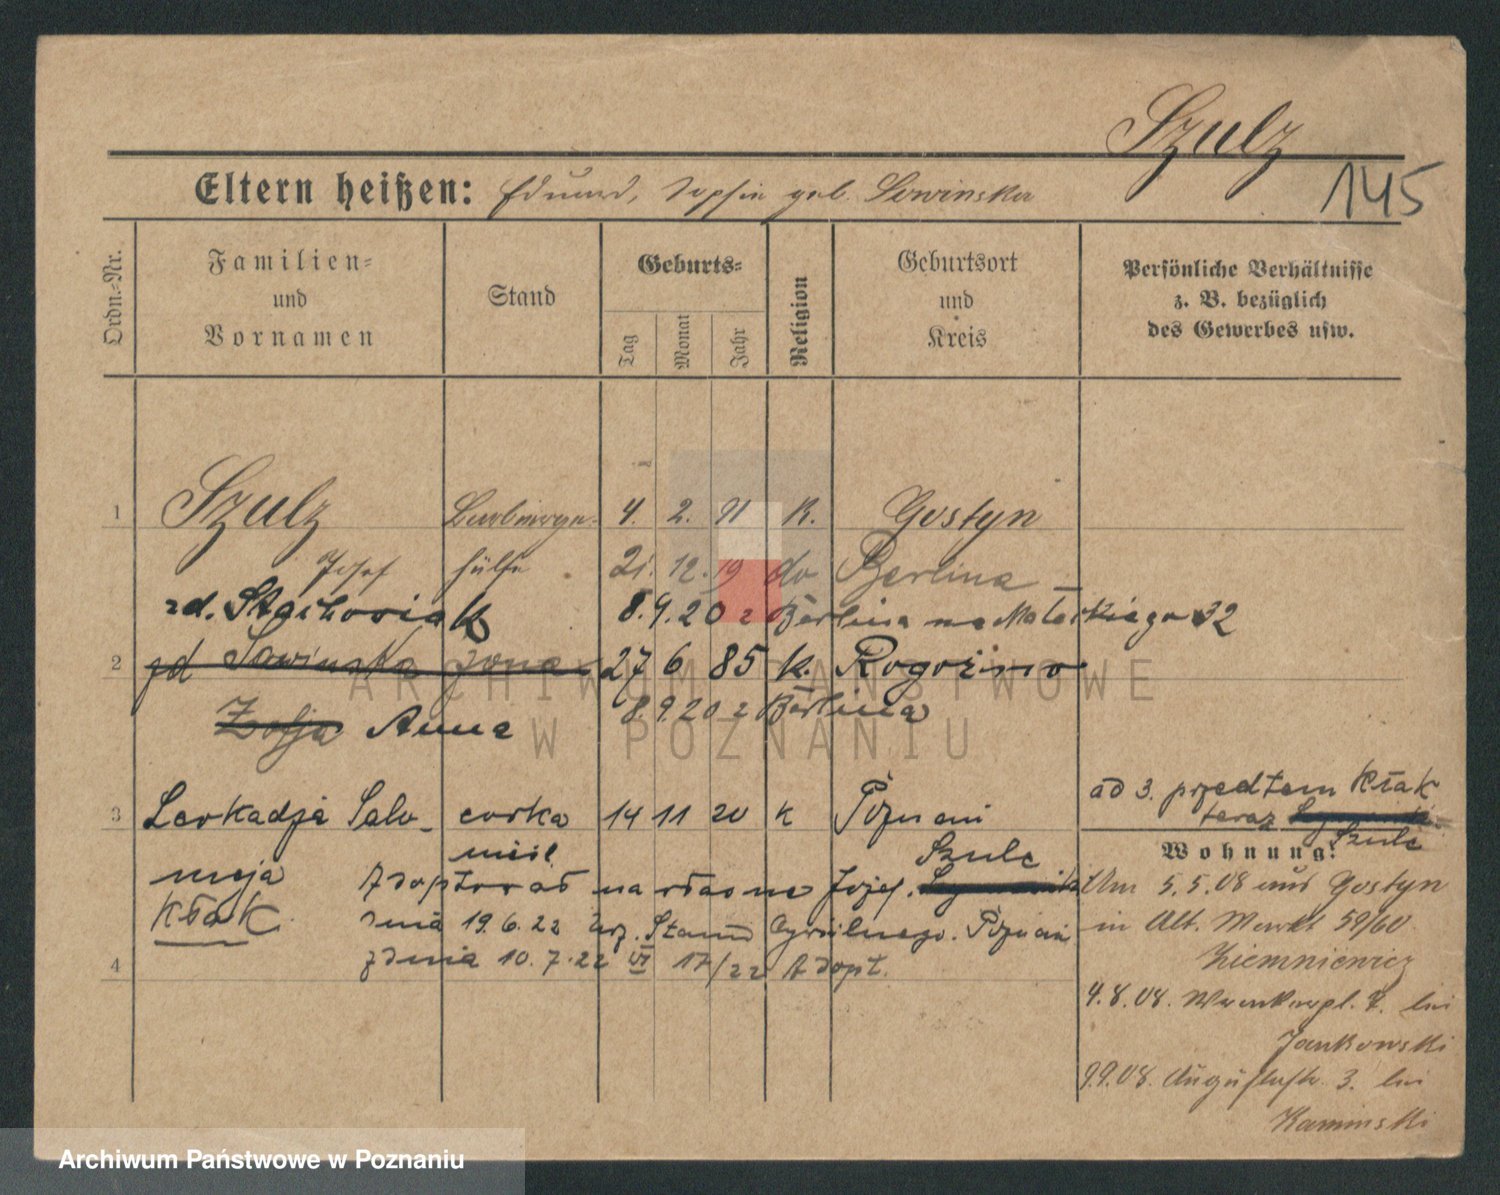 Szulz
145
Eltern heißen: Eduard, Sophie geb. Sowinska
Ordn.-Nr.
Familien-
und
Vornamen
Stand
Geburts-
Tag
Monat
Jahr
Religion
Geburtsort
und
Kreis
Persönliche Verhältnisse
z. B. bezüglich
des Gewerbes usw.
1 Szulz Barbierge- 4. 2. 91 K. Gostyn
Josef hülfe 21. 12. 19 do Berlina
zd. Stachowiak 8.9.20 z Berlina na Małeckiego 32
2 zd Sowinska żona 27 6 85 k. Rogoźno
Zofja Anna 8.9.20 z Berlina
3 Leokadja Salo- corka 14 11 20 k Poznań
meja nieśl.
Kłak
ad 3. przedtem Kłak
teraz Szulc
Wohnung:
Adoptował na własne Józef Szulc
dnia 19.6.22 Urz. Stanu Cywilnego. Poznań
zdnia 10.7.22 VI 17/22 Adopt.
4
Am 5.5.08 aus Gostyn
in Alt. Markt 59/60
Ziemniewicz
4.8.08. Wronkerpl. 7. bei
Jankowski
9.9.08. Augustastr. 3. bei
Kaminski
ARCHIWUM PAŃSTWOWE
W POZNANIU
Archiwum Państwowe w Poznaniu